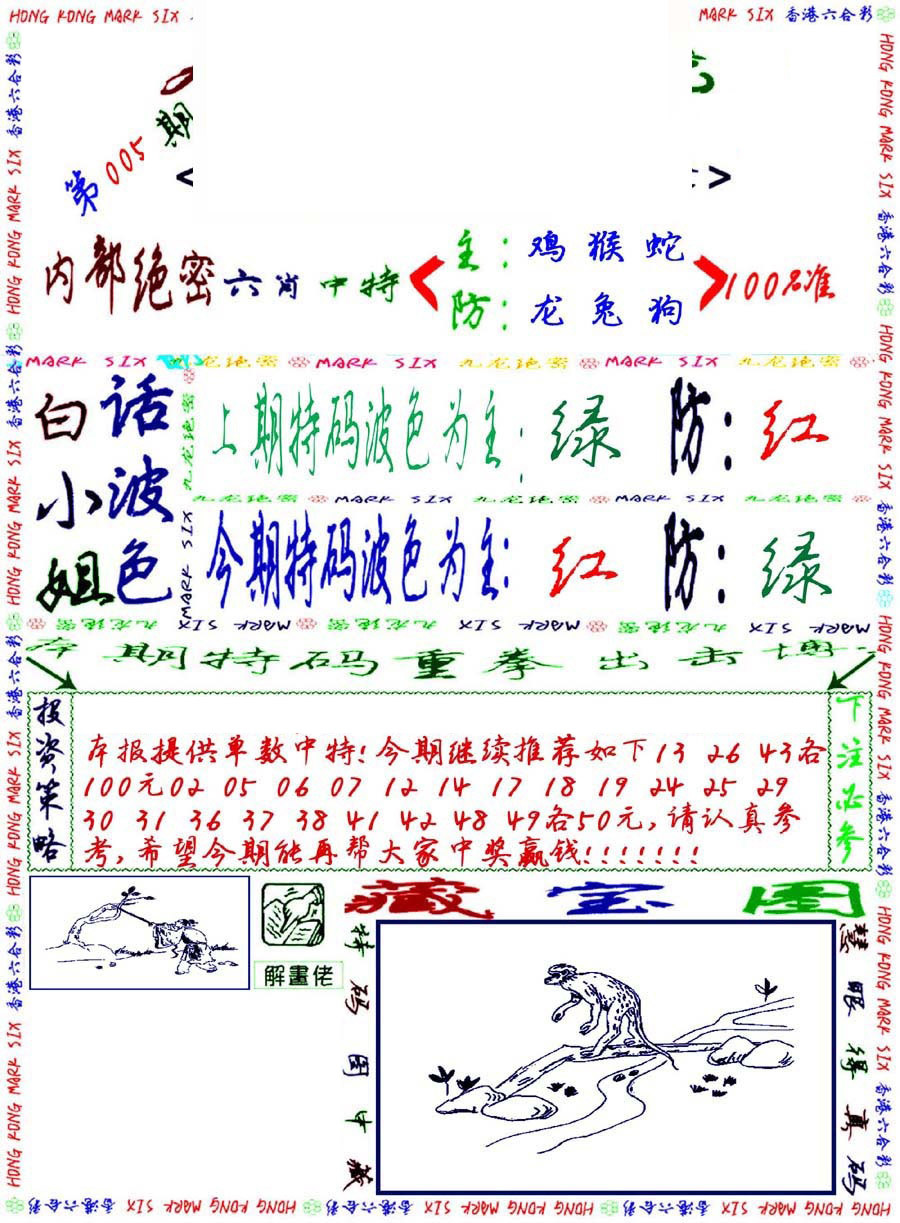 HONG KONG MARK SIX
MARK SIX 香港六合彩
第005期
< >
内部绝密六肖中特
主：鸡猴蛇
防：龙兔狗
100%准
MARK SIX 九龙绝密 MARK SIX 九龙绝密 MARK SIX 九龙绝密
白话
小波
姐色
上期特码波色为主：绿 防：红
九龙绝密 MARK SIX 九龙绝密 MARK SIX 九龙绝密
今期特码波色为主：红 防：绿
九龙绝密 MARK SIX 九龙绝密 MARK SIX 九龙绝密 MARK SIX
本期特码重拳出击搏
投资策略
本报提供单数中特!今期继续推荐如下13 26 43各
100元02 05 06 07 12 14 17 18 19 24 25 29
30 31 36 37 38 41 42 48 49各50元,请认真参
考,希望今期能再帮大家中奖赢钱!!!!!!!
下注必参
藏宝图
解畫佬
特码图中藏
慧眼得真码
HONG KONG MARK SIX 香港六合彩